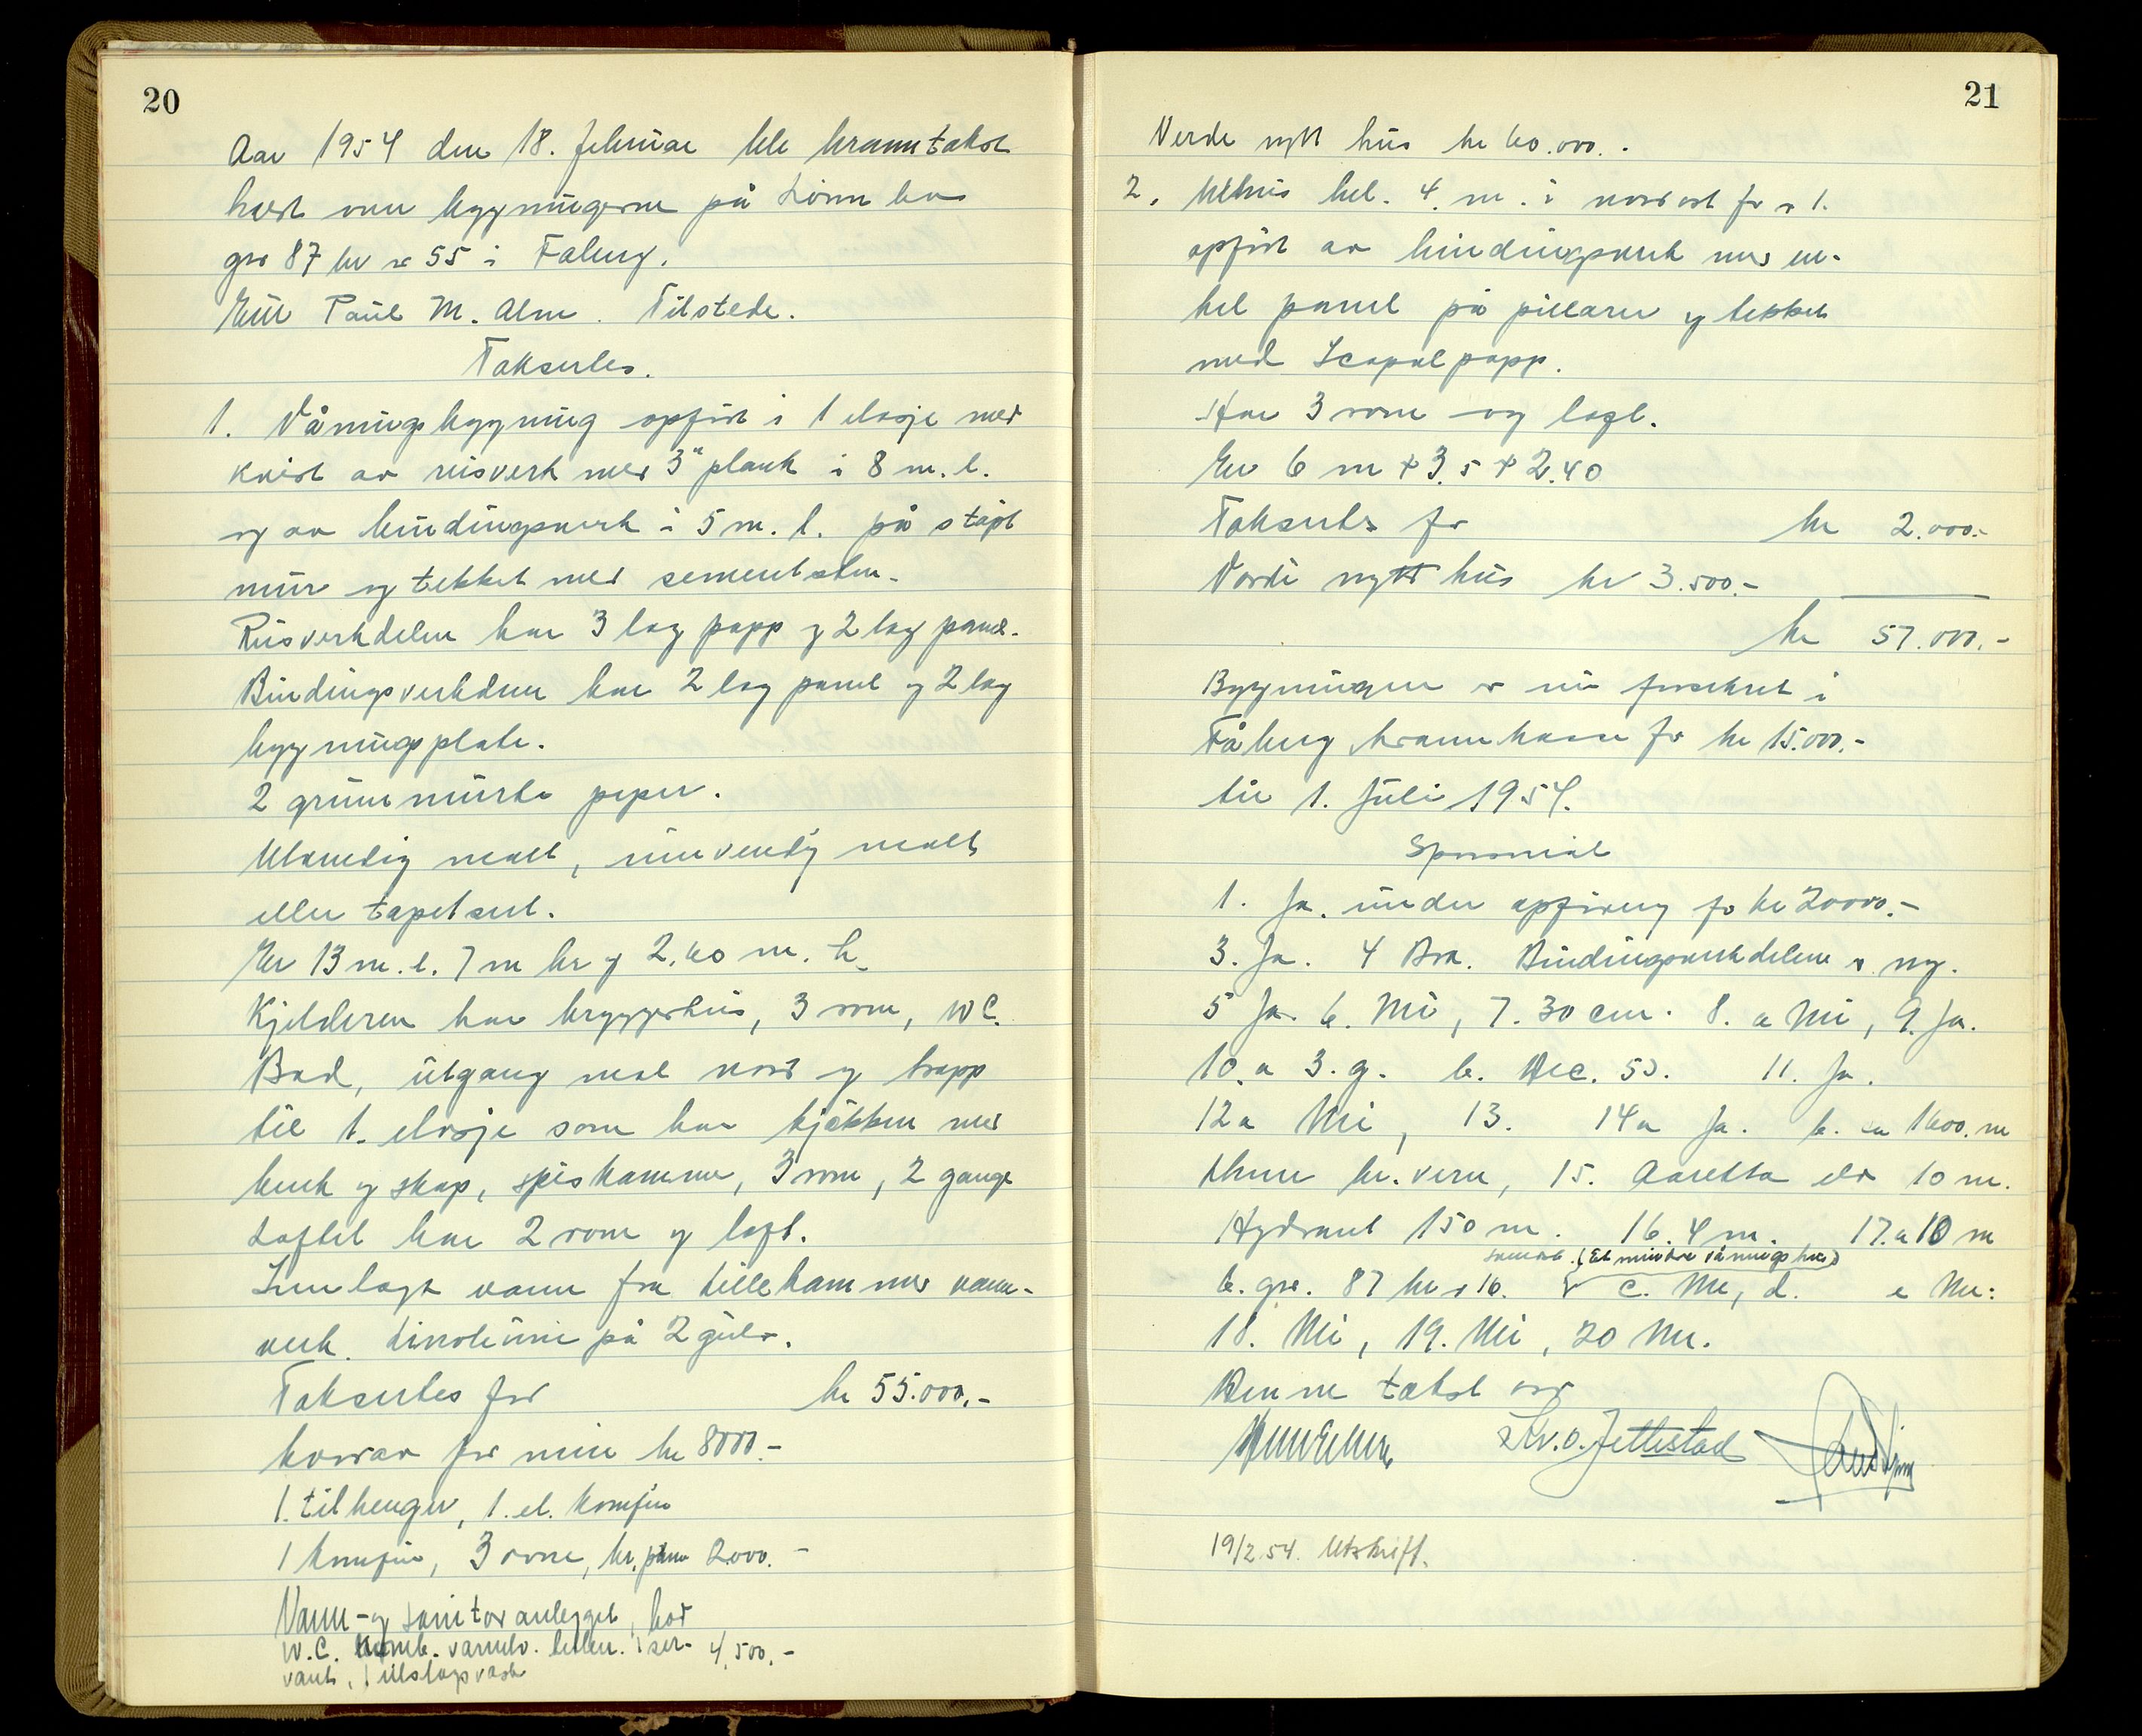 20
Aar 1954 den 18. februar ble branntakst
holdt over bygningerne på Lönn hos
gnr 87 br nr 55 i Faberg.
Eier Paul M. Alm. Tilstede.
Taksertes.
1. Våningsbygning opfört i 1 etasje med
kvist av reisverk med 3" plank i 8 m. l.
og av bindingsverk i 5 m. l. på stöpt
mur og tekket med sementsten.
Reisverkdelen har 3 lag papp og 2 lag panel.
Bindingsverkdelen har 2 lag panel og 2 lag
bygningsplate.
2 grunnmurte piper.
Utvendig malt, innvendig malt
eller tapetsert.
Er 13 m. l. 7 m br og 2.60 m. h.
Kjelderen har bryggerhus, 3 rom, WC.
Bad, utgang mot nord og trapp
til 1. etasje som har kjökken med
benk og skap, spiskammer, 3 rom, 2 gange
Loftet har 2 rom og loft.
Innlagt vann fra Lillehammer vann-
verk. Linoleum på 2 gulv.
Taksertes for kr 55.000.-
hvorav for mur kr 8000.-
1. tilhenger, 1. el. komfur
1 komfur, 3 ovne, br. pum 2000.-
Vann- og sanitæranlegget, bad
W.C. komb. varmtv. bereder. 1 ser- 4,500.-
vant, 1 utslagsvask
21
Verdi nytt hus kr 60.000.-
2. Uthus bel. 4. m. i nordost for nr 1.
opfört av bindingsverk med en-
kel panel på pillarer og tekket
med Icopal papp.
Har 3 rom og loft.
Er 6 m + 3.5 + 2.40
Taksertes for kr 2.000.-
Verdi nytt hus kr 3.500.-
kr 57.000.-
Bygningen er nu forsikret i
Fåberg brannkasse for kr 15.000.-
til 1. Juli 1954.
Spörsmål
1. Ja. under opföring for kr 20000.-
3. Ja. 4 Bra. Bindingsverkdelen er ny.
5 Ja. 6. Nei, 7. 30 cm. 8. a Nei, 9. Ja.
10. a 3. g. b. Dec. 53. 11. Ja.
12a Nei, 13. 14a Ja. b. ca 1600. m
br. vern, 15. Aaretta elv 10 m.
Hydrant 150 m. 16. 4 m. 17. a 10 m
(Et mindre våningshus)
b. gnr. 87 br nr 16. c. Nei, d. e Nei.
18. Nei, 19. Nei, 20 Nei.
Denne takst var
O. Jettestad
19/2 54. Utskrift.